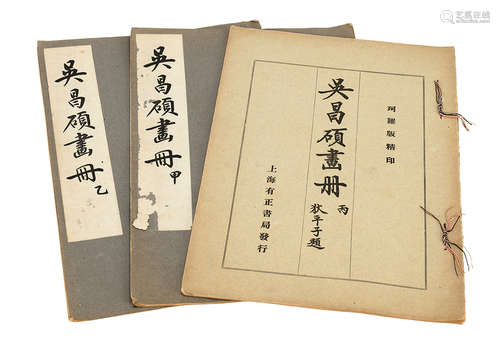 吳昌碩畫冊
乙
吳昌碩畫冊
甲
珂羅版精印
吳昌碩畫冊
丙
狄平子題
上海有正書局發行